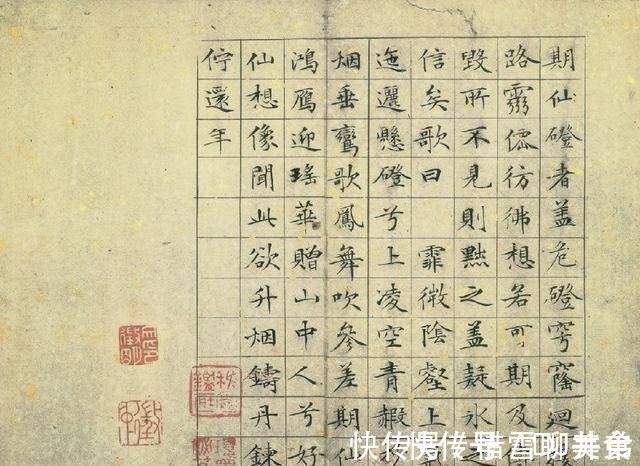 期仙磴者盖危磴穹窿迴
路靈僊彷彿想若可期及
毀所不見則黜之盖疑氷
信矣歌曰 霏微陰壑上
迤邐懸磴兮上凌空青赮
烟垂鸞歌鳳舞吹參差期仙
鴻鴈迎瑤華贈山中人兮好
仙想像聞此欲升烟鑄丹鍊
佇還年